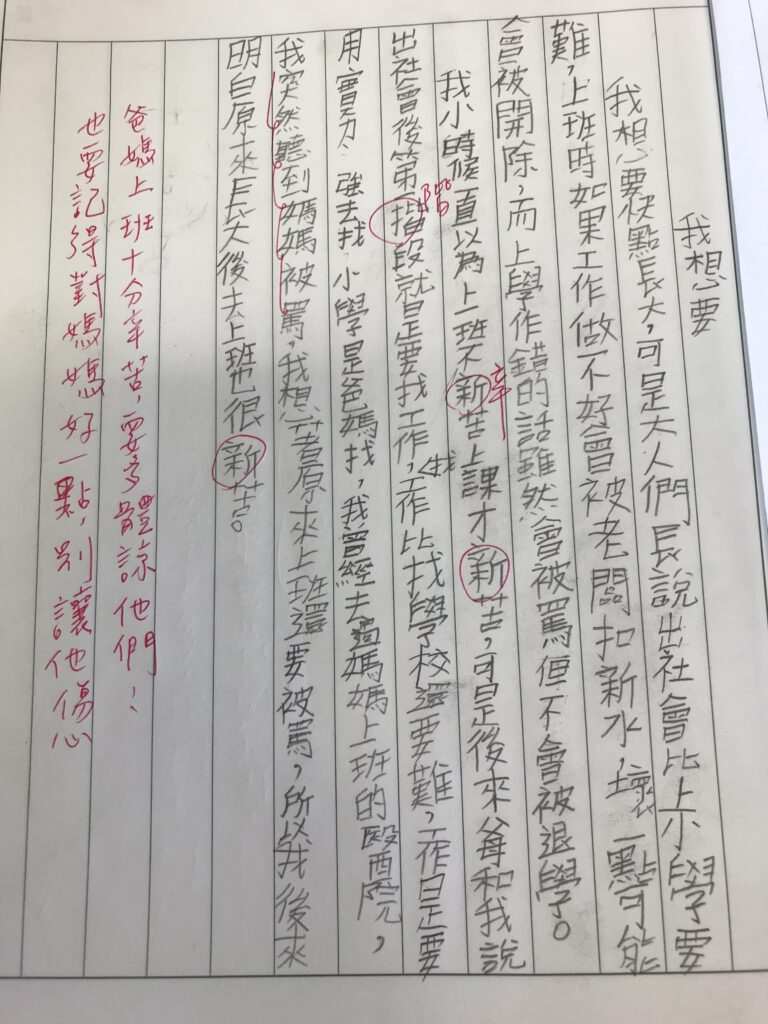 我想要
我想要快點長大，可是大人們長說出社會比上小學要
難，上班時如果工作做不好會被老闆扣新水，壞一點可能
會被開除，而上學作錯的話雖然會被罵但不會被退學。
我小時候一直以為上班不新苦上課才新苦，可是後來父母和我說
辛
出社會後第一揩段就是要找工作，找工作比找學校還要難，工作是要
階
用實力強去找，小學是爸媽找，我曾經去過媽媽上班的醫院，
我突然聽到媽媽被罵，我想著原來上班還要被罵，所以我後來
明白原來長大後去上班也很新苦。
爸媽上班十分辛苦，要多體諒他們！
也要記得對媽媽好一點，別讓他傷心